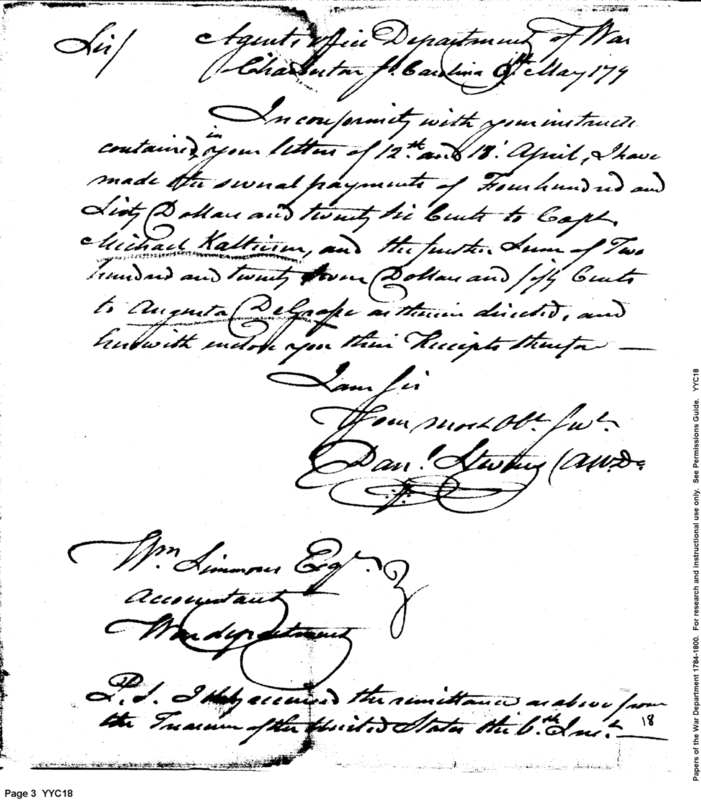 Sir/ Agents office Department of War
Charleston So. Carolina 9th May 179
In conformity with your instructi
contained in your letters of 12th and 18 April, I have
made the several payments of Four hundred and
Sixty Dollars and twenty six Cents to Capt
Michael Kalteisen, and the further Sum of Two
hundred and twenty Dollars and fifty Cents
to Augusta DeGrasse as therein directed, and
herewith enclose you their Receipts therefor —
I am Sir
Your most Obt Svt
Danl Stevens AWD
Wm Simmons Esqr
Accountant
War department
P.S. I duly received the remittance as above from
the Treasurer of the United States the 6th Inst —
18
Page 3 YYC18
Papers of the War Department 1784-1800. For research and instructional use only. See Permissions Guide. YYC18